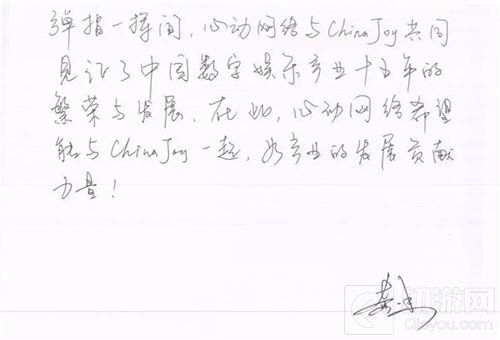 弹指一挥间，心动网络与ChinaJoy共同
见证了中国数字娱乐产业十五年的
繁荣与发展，在此，心动网络希望
能与ChinaJoy一起，为产业的发展贡献
力量！